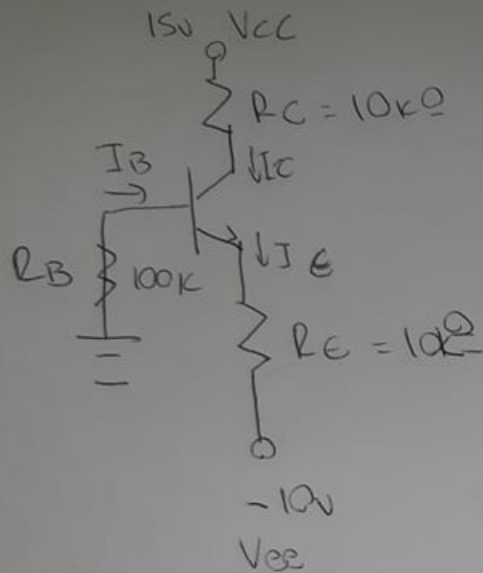 15v VCC
RC = 10KΩ
IB
↓IC
RB
100K
↓IE
RE = 10KΩ
-10v
Vee